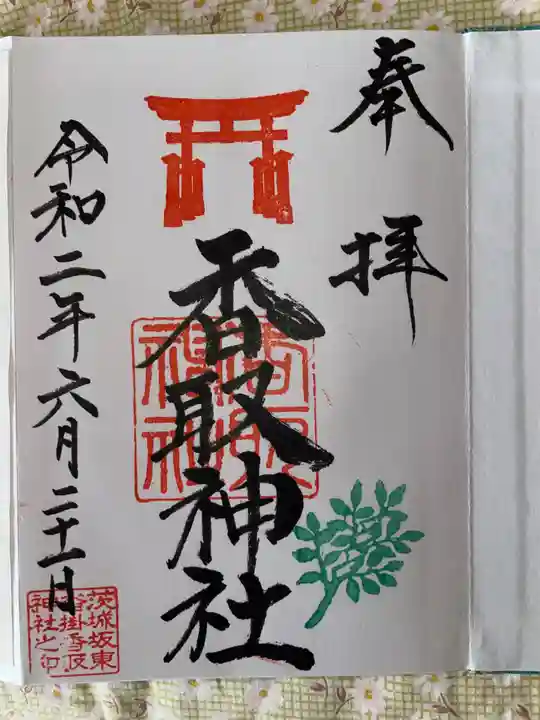 奉拝
香取神社
香取神社
令和二年六月二十一日
茨城坂東
沓掛香取
神社之印